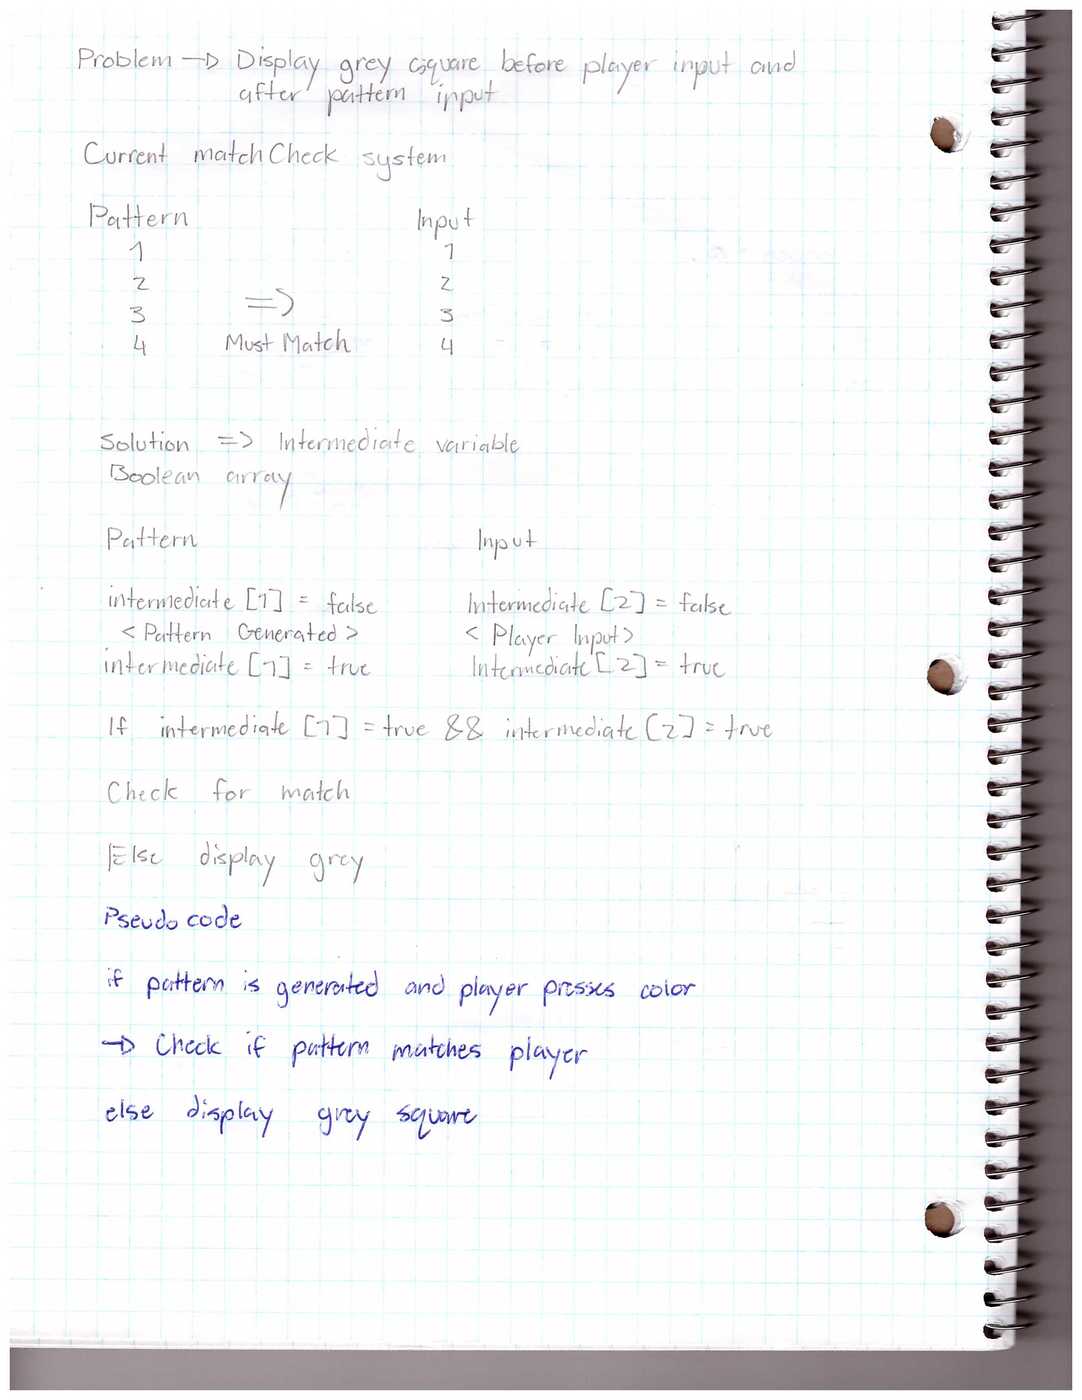 Problem → Display grey square before player input and
after pattern input
Current matchCheck system
Pattern Input
1 1
2 2
3 => 3
4 Must Match 4
Solution => Intermediate variable
Boolean array
Pattern Input
intermediate [1] = false Intermediate [2] = false
< Pattern Generated > < Player Input>
intermediate [1] = true Intermediate [2] = true
If intermediate [1] = true && intermediate [2] = true
Check for match
Else display grey
Pseudo code
if pattern is generated and player presses color
→ Check if pattern matches player
else display grey square